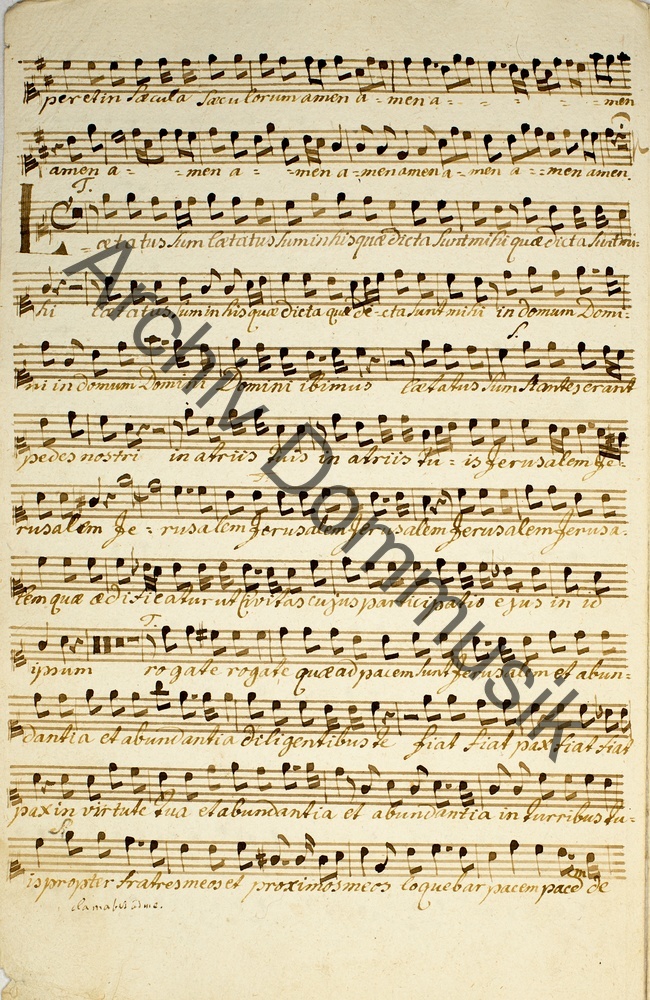 per et in sæcula sæculorum amen a - men a - - - - - men
amen a - - men a - - men a - men amen a - men a - - men amen.
T.
Lætatus sum lætatus sum in his quæ dicta sunt mihi quæ dicta sunt mi-
hi lætatus sum in his quæ dicta quæ di - cta sunt mihi in domum Domi-
S.
ni in domum Domini Domini ibimus lætatus sum stantes erant
pedes nostri in atriis tuis in atriis tu - is Jerusalem Je-
rusalem Je - rusalem Jerusalem Jerusalem Jerusalem Jerusa-
lem quæ ædificatur ut Civitas cujus participatio ejus in id
T.
ipsum rogate rogate quæ ad pacem sunt Jerusalem et abun-
dantia et abundantia diligentibus te fiat fiat pax fiat fiat
pax in virtute tua et abundantia et abundantia in turribus tu-
S.
is propter fratres meos et proximos meos loquebar pacem pacem de
Archiv Dommusik